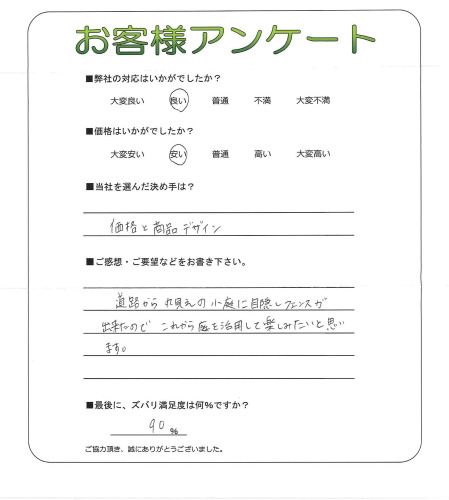 お客様アンケート
■弊社の対応はいかがでしたか?
大変良い 良い 普通 不満 大変不満
■価格はいかがでしたか?
大変安い 安い 普通 高い 大変高い
■当社を選んだ決め手は?
価格と商品デザイン
■ご感想・ご要望などをお書き下さい。
道路から丸見えの小庭に目隠しフェンスが
出来たので これから庭を活用して楽しみたいと思い
ます。
■最後に、ズバリ満足度は何%ですか?
90 %
ご協力頂き、誠にありがとうございました。